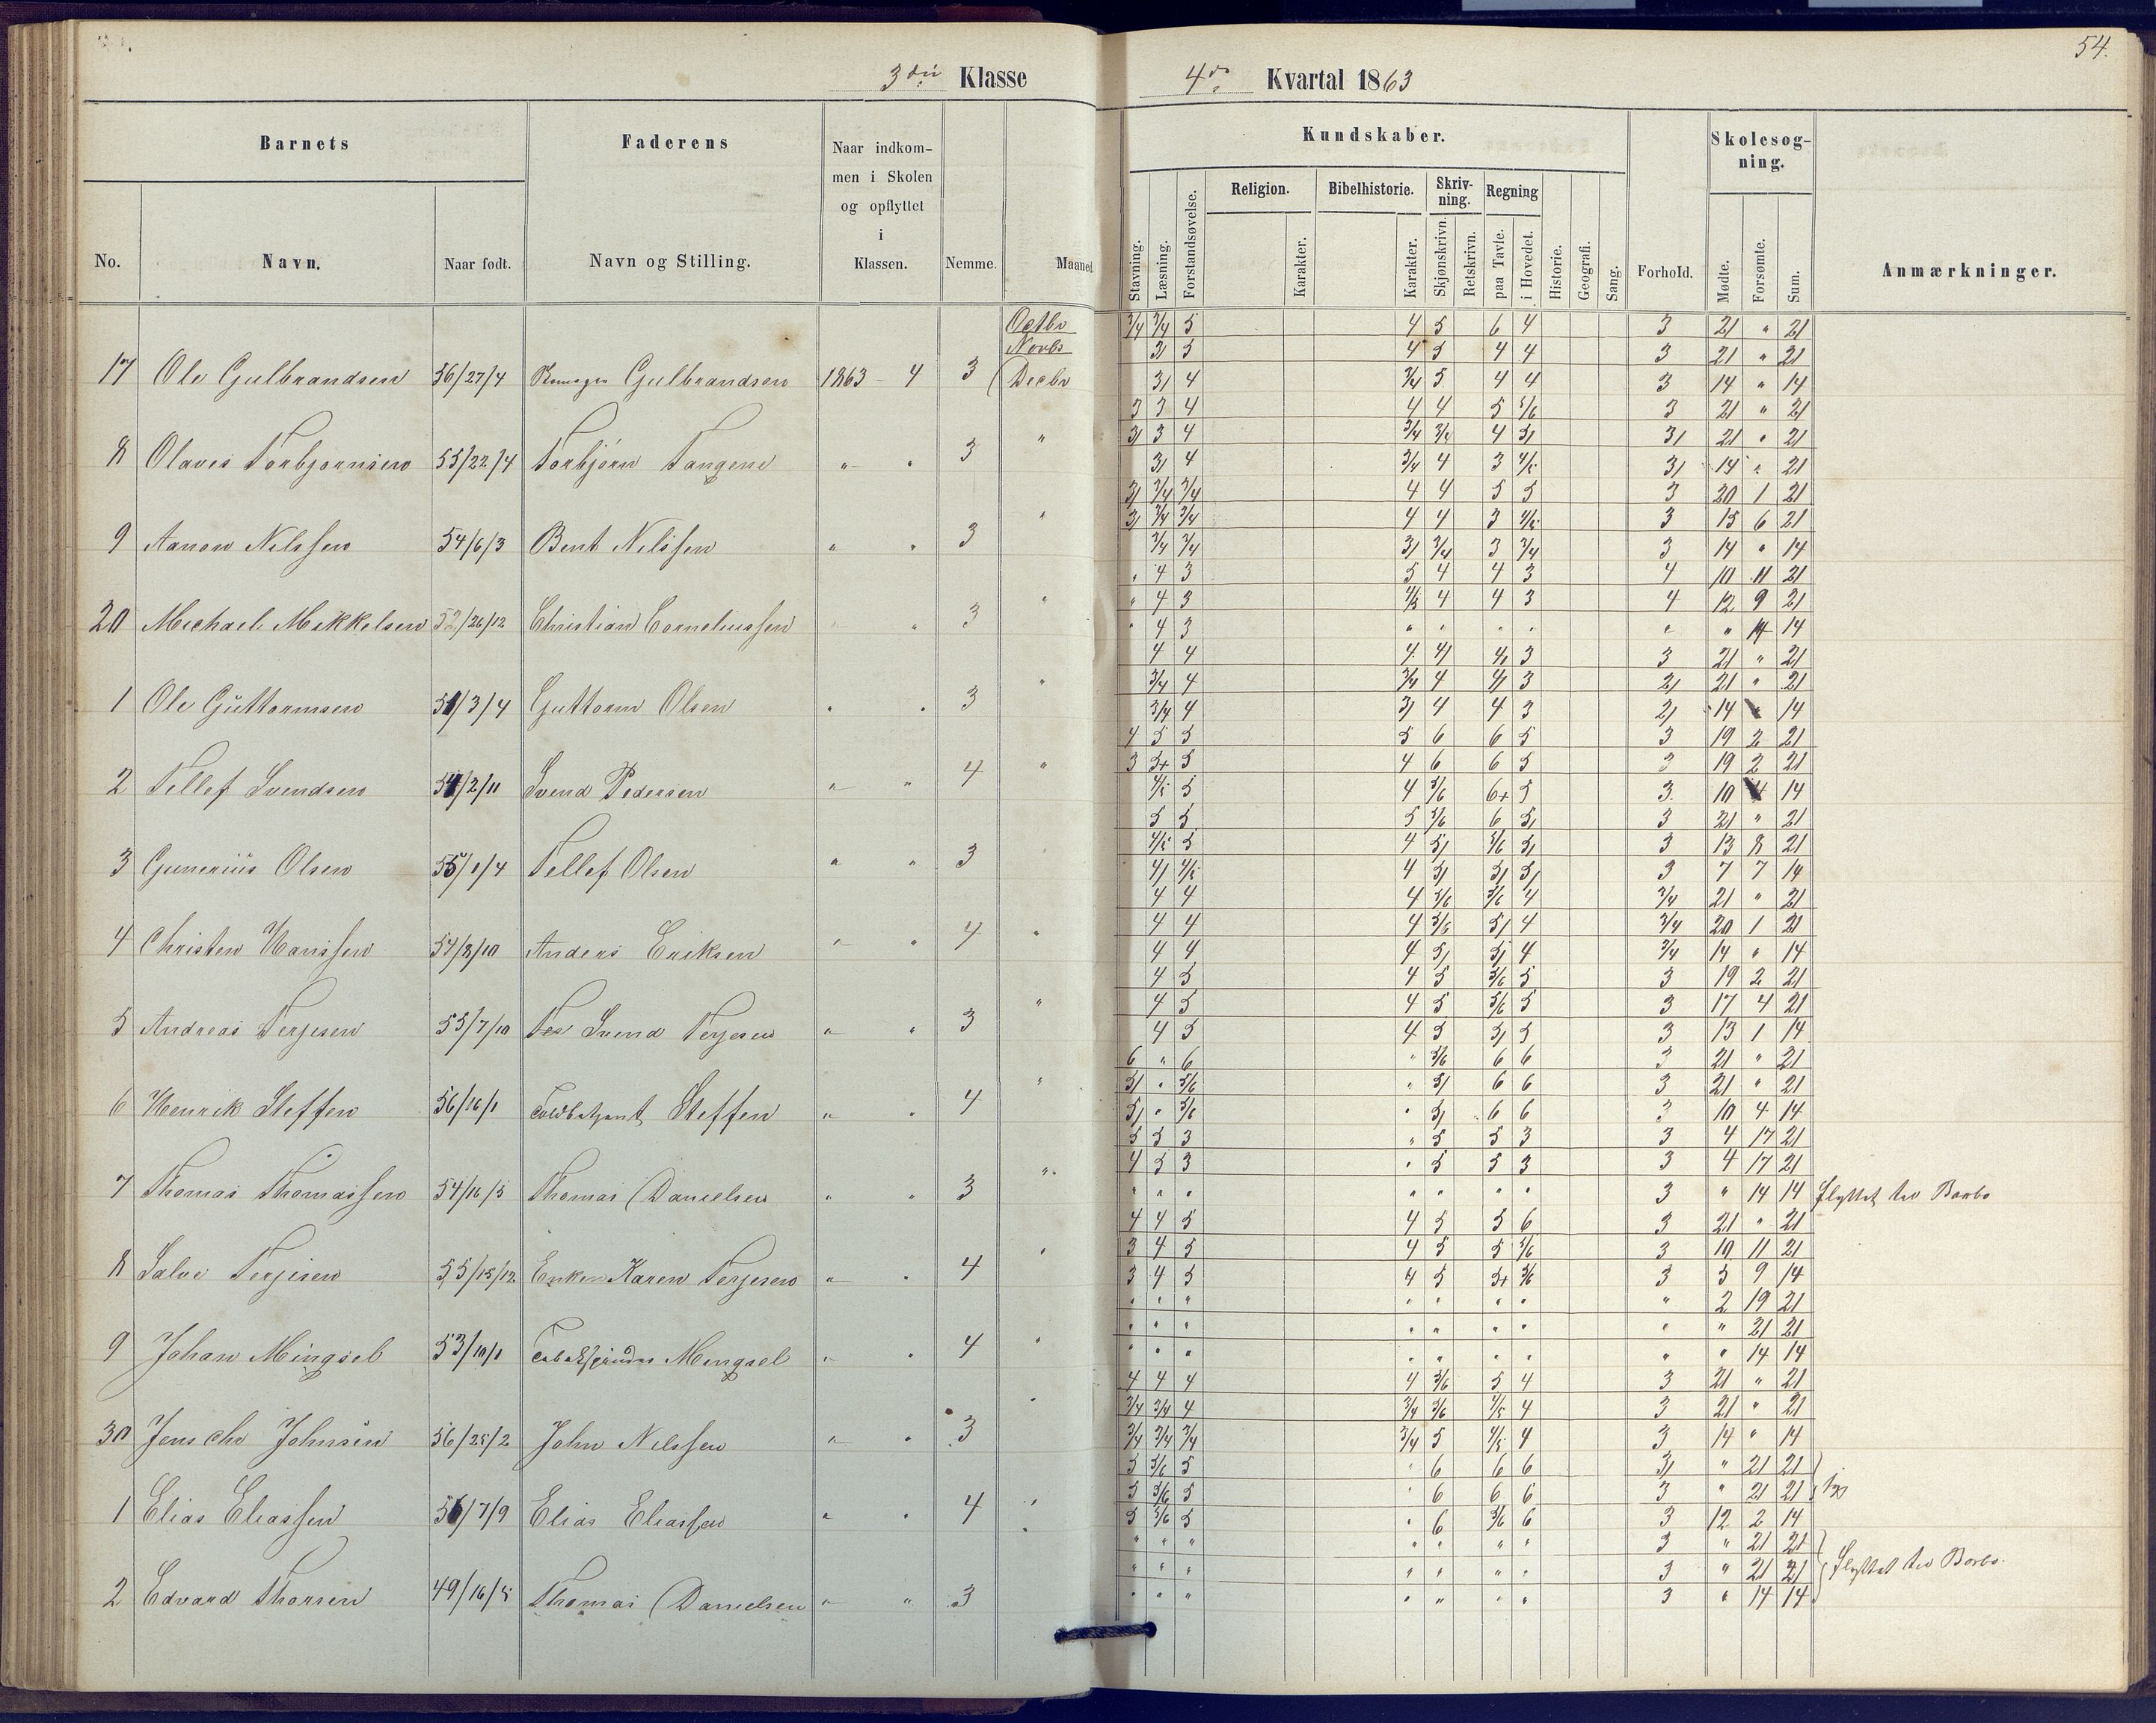 54.
3die Klasse 4de Kvartal 1863
Barnets Faderens Naar indkom- men i Skolen og opflyttet i Klassen. Nemme. Maaned. Kundskaber. Forhold. Skolesøg- ning. Anmærkninger.
No. Navn. Naar født. Navn og Stilling.
Stavning. Læsning. Forstandsøvelse. Religion. Karakter. Bibelhistorie. Karakter. Skriv- ning. Skjønskrivn. Retskrivn. Regning paa Tavle. i Hovedet. Historie. Geografi. Sang. Mødte. Forsømte. Sum.
Octbr 3/4 3/4 5 4 5 6 4 3 21 " 21
Novbr 3/ 5 4 5 4 4 3 21 " 21
17 Ole Gulbrandsen 56/27/4 Gulbrandsen 1863 - 4 3 Decbr 3/ 4 3/4 5 4 4 3 14 " 14
3 3 4 4 4 5 5/6 3 21 " 21
3/ 3 4 3/4 3/4 4 5/ 3/ 21 " 21
8 Olaves Torbjørnsen 55/22/4 Torbjørn Tangene " " 3 " 3/ 4 3/4 4 3 4/5 3/ 14 " 21
3/ 3/4 3/4 4 4 5 5 3 20 1 21
3/ 3/4 3/4 4 4 3 4/5 3 15 6 21
9 Aanon Nilssen 54/6/3 Bent Nilssen " " 3 " 3/4 3/4 3/ 3/4 3 3/4 3 14 " 14
" 4 3 5 4 4 3 4 10 11 21
" 4 3 4/5 4 4 3 4 12 9 21
20 Michael Mikkelsen 52/26/12 Christian Corneliussen " " 3 " " 4 3 " " " " " " 14 14
4 4 4 4/ 4/ 3 3 21 " 21
3/4 4 3/4 4 4/ 3 2/ 21 " 21
1 Ole Guttormsen 51/3/4 Guttorm Olsen " " 3 " 3/4 4 3/ 4 4 3 2/ 14 " 14
4 5 5 5 6 6 5 3 19 2 21
3 5+ 5 4 6 6 5 3 19 2 21
2 Tellef Svendsen 54/2/11 Svend Pedersen " " 4 " 4/5 5 4 5/6 6+ 5 3 10 4 14
5 5 5 5/6 6 5/ 3 21 " 21
4/5 5 4 5/ 5/6 5/ 3 13 8 21
3 Gunerius Olsen 55/1/4 Tellef Olsen " " 3 " 4/ 4/5 4 5/ 5/ 5/ 3 7 7 14
4 4 4 5/6 5/6 4 3/4 21 " 21
4 4 4 5/6 5/ 4 3/4 20 1 21
4 Christen Hanssen 54/8/10 Anders Eriksen " " 4 " 4 4 4 5/ 5/ 4 3/4 14 " 14
4 5 4 5 5/6 5 3 19 2 21
4 5 4 5 5/6 5 3 17 4 21
5 Andreas Terjesen 55/7/10 Svend Terjesen " " 3 " 4 5 4 5 5/ 5 3 13 1 14
6 " 6 " 5/6 6 6 3 21 " 21
5/ " 5/6 " 5/ 6 6 3 21 " 21
6 Henrik Steffen 56/16/1 Toldbetjent Steffen " " 4 " 5/ " 5/6 " 5/ 6 6 3 10 4 14
5 5 3 " 5 5 3 3 4 17 21
4 5 3 " 5 5 3 3 4 17 21
7 Thomas Thomassen 54/16/5 Thomas Danielsen " " 3 " " " " " " " " 3 " 14 14 flyttet til Barbo
4 4 5 4 5 5 6 3 21 " 21
3 4 5 4 5 5 5/6 3 10 11 21
8 Salve Terjesen 55/15/12 Enken Karen Terjesen " " 4 " 3 4 5 4 5 5+ 5/6 3 5 9 14
" " " " " " " " 2 19 21
" " " " " " " " " 21 21
9 Johan Mingsel 53/10/1 Mingsel " " 4 " " " " " " " " " " 14 14
4 4 4 4 5/6 5 4 3 21 " 21
3/4 3/4 4 3/4 5/6 4/5 4 3 21 " 21
30 Jens Chr Johnsen 56/25/2 John Nilssen " " 3 " 3/4 3/4 3/4 3/4 5 4/5 4 3 14 " 14
5 5/6 5 " 6 6 6 3/ " 21 21
5 5/6 5 " 6 6 6 3 " 21 21
1 Elias Eliassen 56/7/9 Elias Eliassen " " 4 " 5 5/6 5 " 6 5/6 6 3 12 2 14
" " " " " " " 3 " 21 21
" " " " " " " 3 " 21 21 flyttet til Barbo.
2 Edvard Thorsen 49/16/5 Thomas Danielsen " " 3 " " " " " " " 3 " 14 14